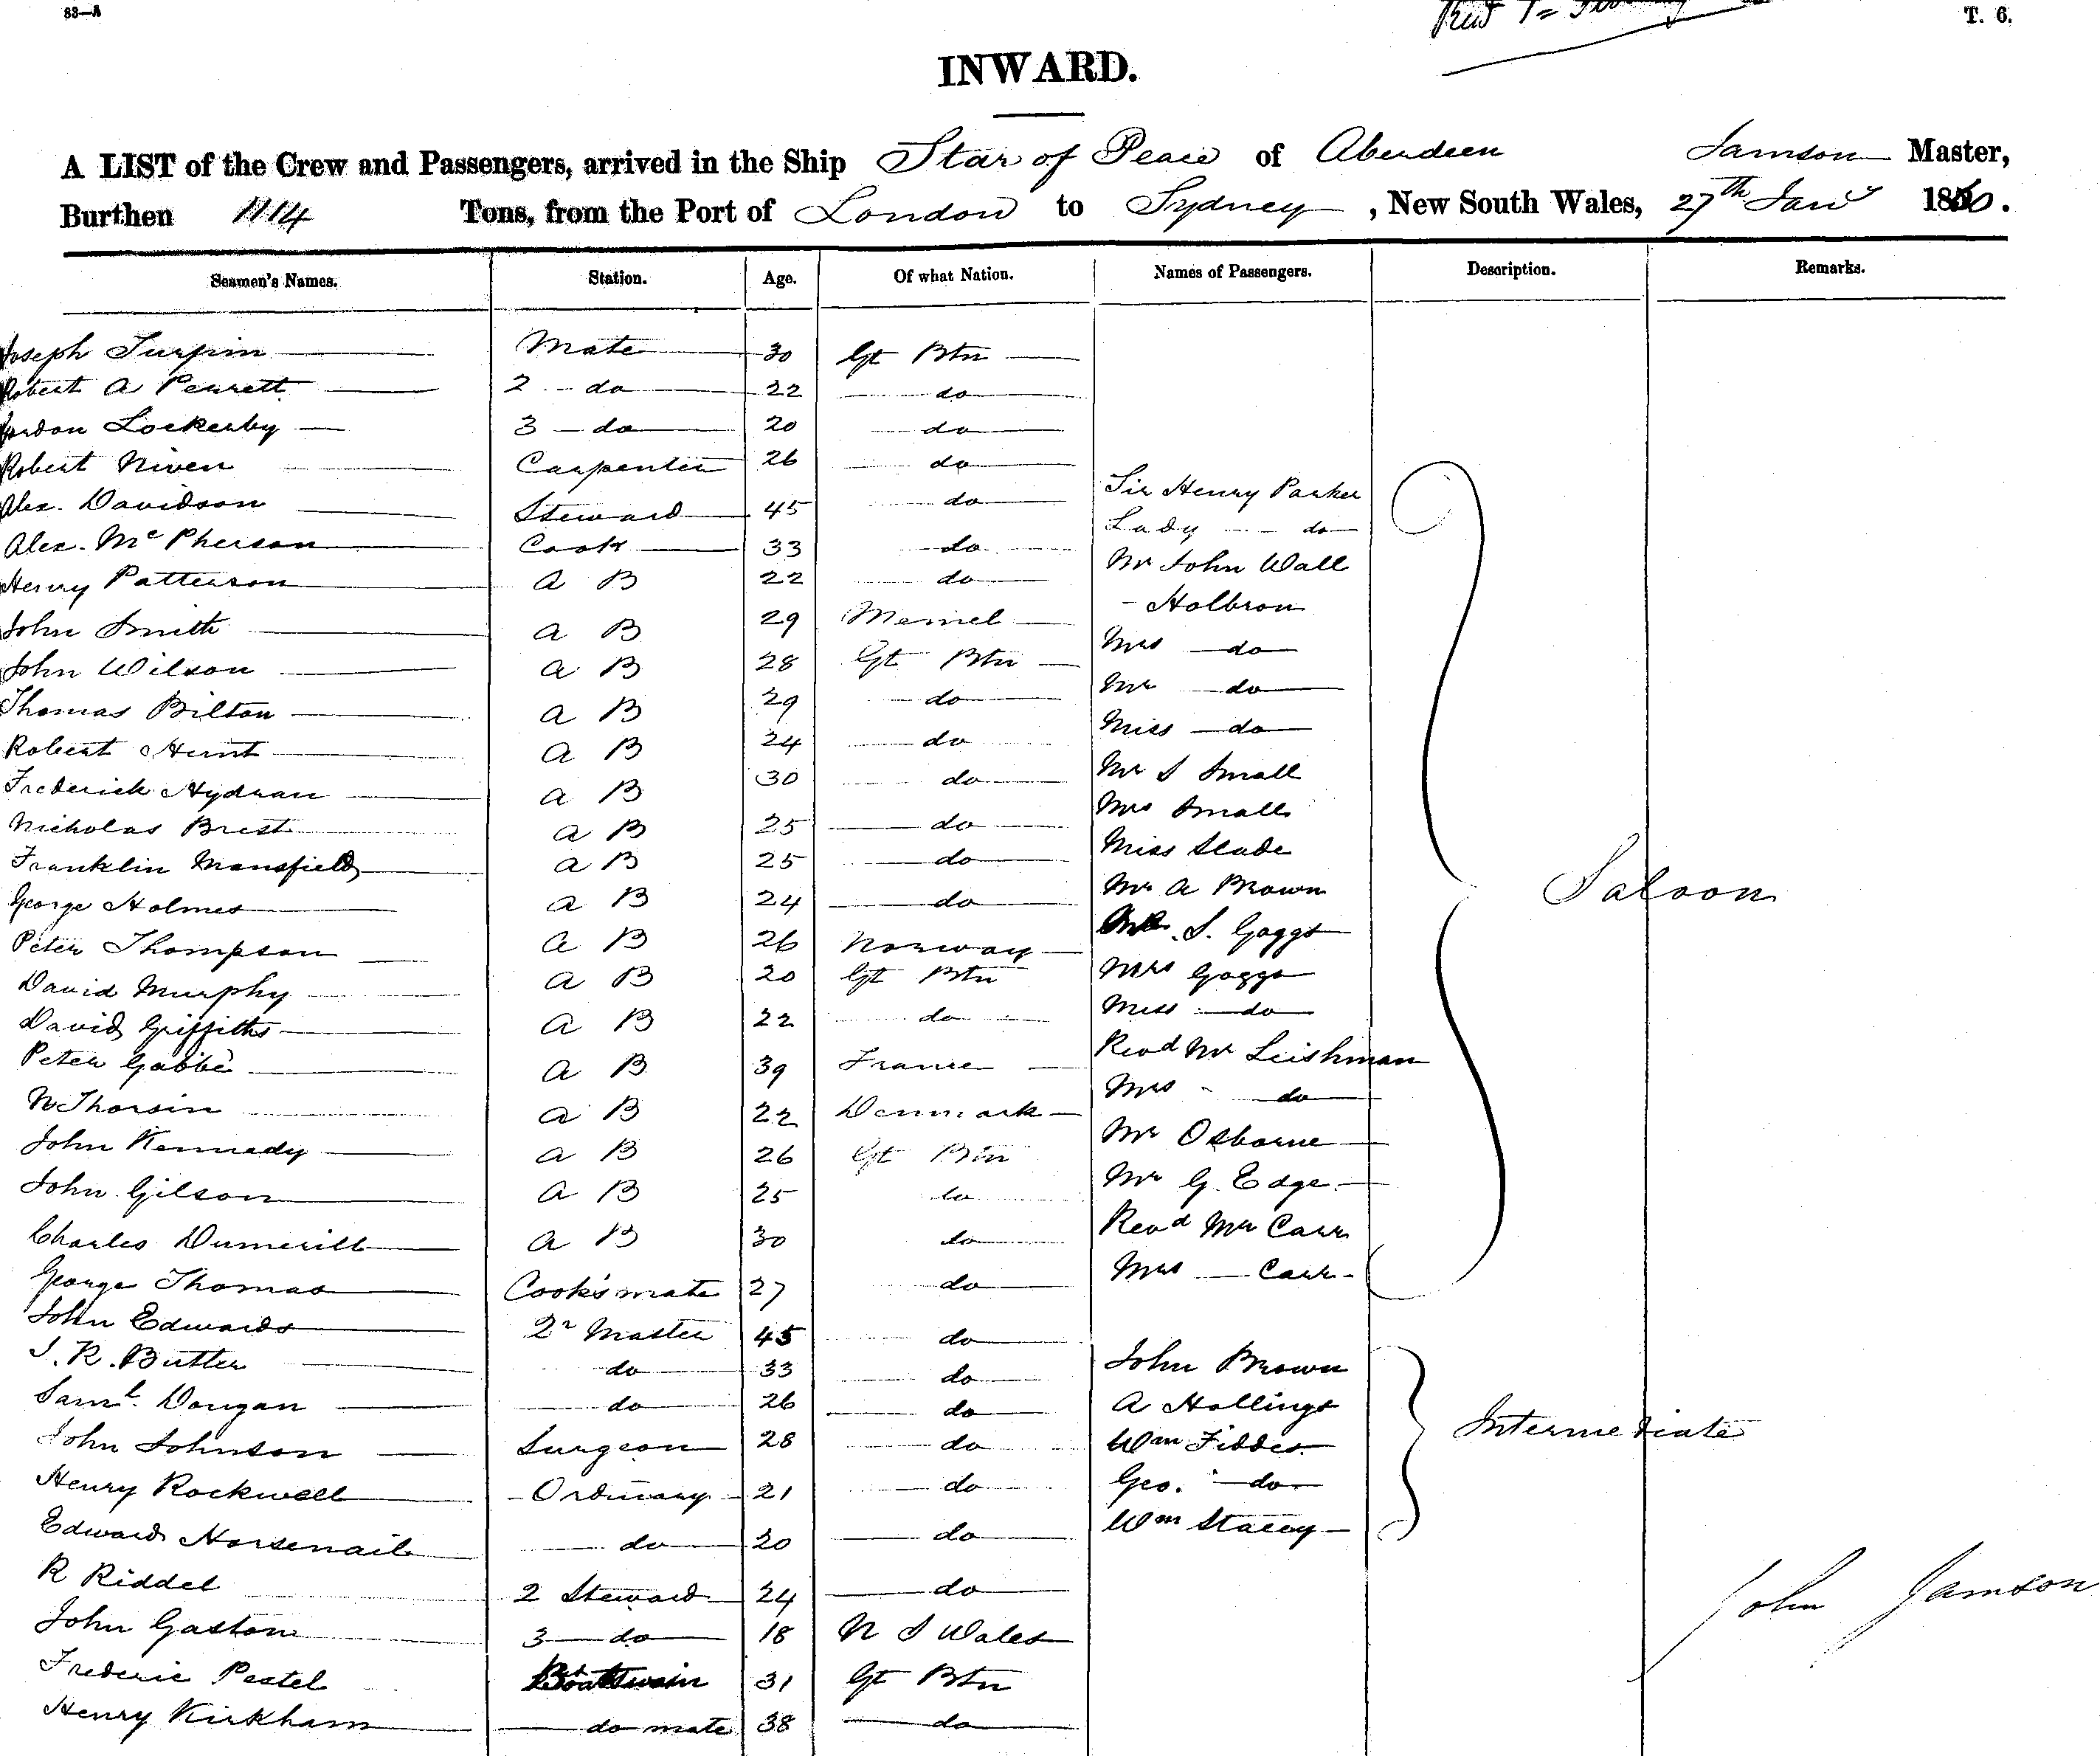 83—A
T. 6.
INWARD.
A LIST of the Crew and Passengers, arrived in the Ship Star of Peace of Aberdeen Jamson Master,
Burthen 1114 Tons, from the Port of London to Sydney, New South Wales, 27th Jany 1860.
Seamen's Names. Station. Age. Of what Nation. Names of Passengers. Description. Remarks.
Joseph Turpin Mate 30 Gt Btn
Robert A Perrett 2 do 22 do
Gordon Lockerby 3 do 20 do
Robert Niven Carpenter 26 do
Alex. Davidson Steward 45 do Sir Henry Parker
Alex. McPherson Cook 33 do Lady do
Henry Patterson A B 22 do Mr John Wall
John Smith A B 29 Memel - Holbron
John Wilson A B 28 Gt Btn Mrs do
Thomas Bilton A B 29 do Mr do
Robert Hunt A B 24 do Miss do
Frederick Hydran A B 30 do Mr S Small
Nicholas Brest A B 25 do Mrs Small
Franklin Mansfield A B 25 do Miss Slade
George Holmes A B 24 do Mr A Brown
Peter Thompson A B 26 Norway S. Gaggs
David Murphy A B 20 Gt Btn Mrs Gaggs
David Griffiths A B 22 do Miss do
Peter Gabbé A B 39 France Revd Mr Leishman
N Thorsin A B 22 Denmark Mrs do
John Kennedy A B 26 Gt Btn Mr Osborne
John Gilson A B 25 do Mr G. Edge
Charles Dumerill A B 30 do Revd Mr Carr
George Thomas Cook's mate 27 do Mrs Carr
Saloon
John Edwards 2r Master 45 do
J. R. Butler do 33 do John Brown
Saml. Dougan do 26 do A Hollings
John Johnson Surgeon 28 do Wm Fiddes
Intermediate
Henry Rockwell Ordinary 21 do Geo. do
Edward Horsenail do 20 do Wm Stacey
R Riddel 2 Steward 24 do
John Gaston 3 do 18 N S Wales
John Jamson
Frederic Pestel Boatswain 31 Gt Btn
Henry Kirkham do mate 38 do